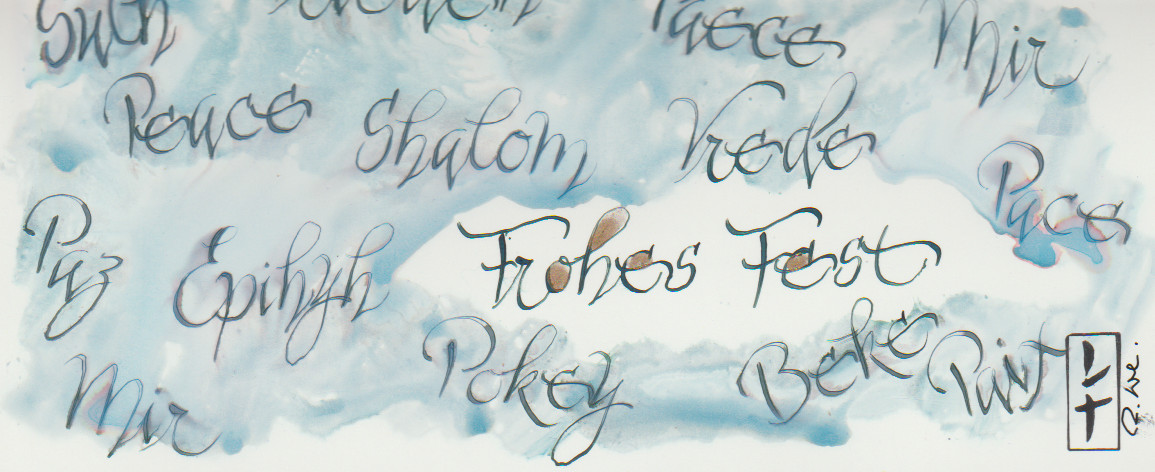 Pace Mir
Peace Shalom Vrede
Pace
Paz Epihyh Frohes Fest
Mir Pokey Beke